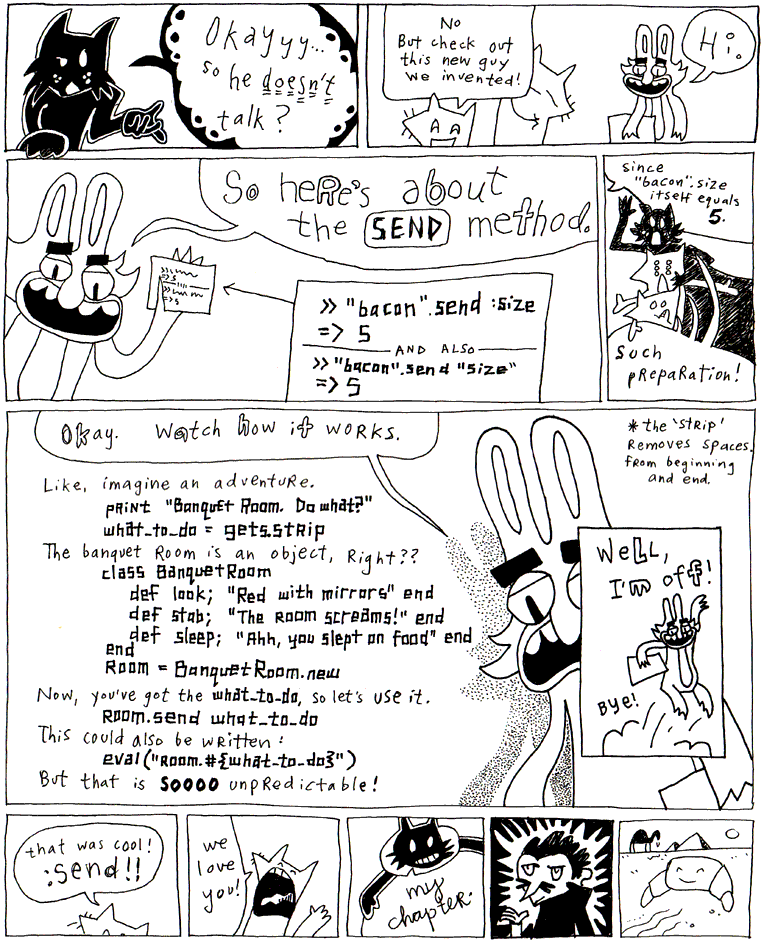 Okayyy...
so he doesn't
talk?
No
But check out
this new guy
we invented!
Hi.
So heRe's about
the SEND method.
>> "bacon".send :size
=> 5
AND ALSO
>> "bacon".send "size"
=> 5
since
"bacon".size
itself equals
5.
such
pRepaRation!
Okay. Watch how it woRks.
Like, imagine an adventuRe.
pRint "Banquet Room. Do what?"
what_to_do = gets.stRip
The banquet Room is an object, Right??
class BanquetRoom
def look; "Red with miRRoRs" end
def stab; "The Room scReams!" end
def sleep; "Ahh, you slept on food" end
end
Room = BanquetRoom.new
Now, you've got the what_to_do, so let's use it.
Room.send what_to_do
This could also be wRitten:
eval("Room.#{what_to_do}")
But that is SOOOO unpRedictable!
* the 'stRip'
Removes spaces
fRom beginning
and end.
WeLL,
I'm off!
Bye!
that was cool!
:send!!
we
love
you!
my
chapteR.